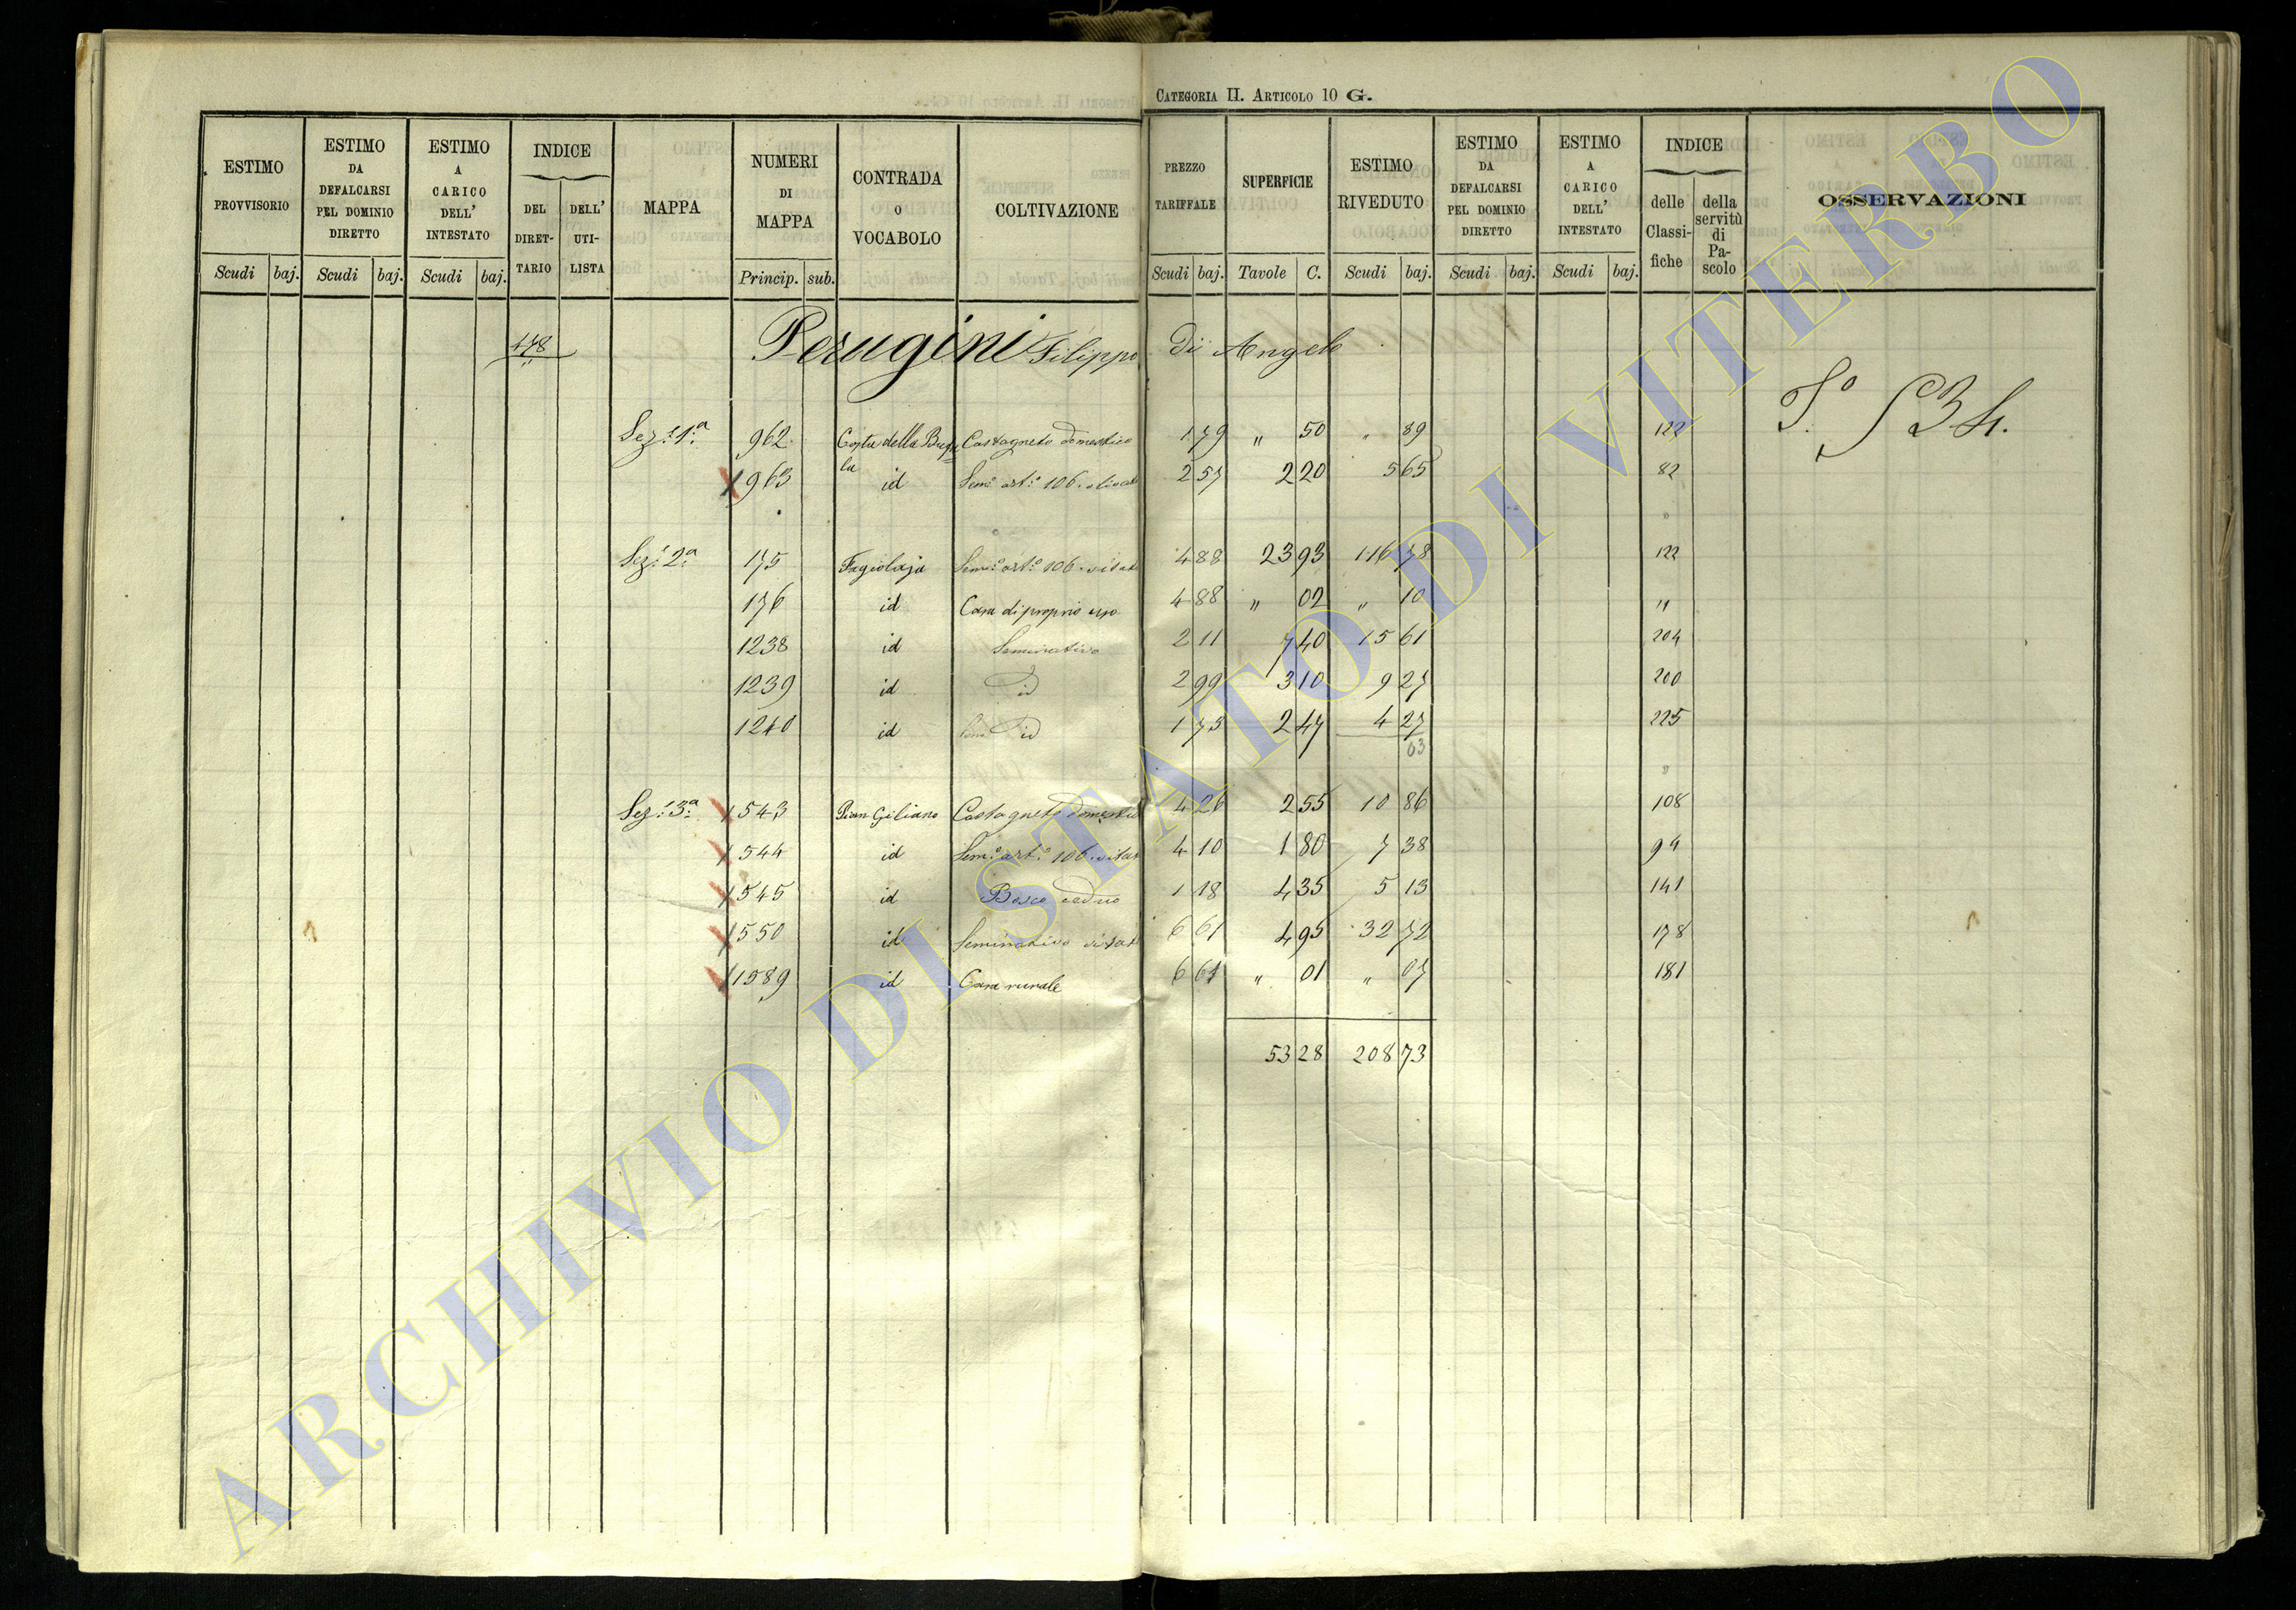 CATEGORIA II. ARTICOLO 10 G.
ESTIMO PROVVISORIO Scudi baj.
ESTIMO DA DEFALCARSI PEL DOMINIO DIRETTO Scudi baj.
ESTIMO A CARICO DELL' INTESTATO Scudi baj.
INDICE DEL DIRET-TARIO DELL' UTI-LISTA
MAPPA
NUMERI DI MAPPA Princip. sub.
CONTRADA O VOCABOLO
COLTIVAZIONE
PREZZO TARIFFALE Scudi baj.
SUPERFICIE Tavole C.
ESTIMO RIVEDUTO Scudi baj.
ESTIMO DA DEFALCARSI PEL DOMINIO DIRETTO Scudi baj.
ESTIMO A CARICO DELL' INTESTATO Scudi baj.
INDICE delle Classi-fiche della servitù di Pa-scolo
OSSERVAZIONI
178 Perugini Filippo di Angelo
Sez: 1ª 962 Costa della Castagneto domestico 1 79 " 50 " 89 122
963 id Sem:º art:º 106. olivat 2 57 2 20 5 65 82
Sez: 2ª 175 Fagiolaja Sem:º art:º 106. vitat 4 88 23 93 116 78 122
176 id Casa di proprio uso 4 88 " 02 " 10 "
1238 id Seminativo 2 11 7 40 15 61 204
1239 id id 2 99 3 10 9 27 200
1240 id id 1 73 2 47 4 27 225
03
Sez: 3ª 543 Pian Giliano Castagneto domestic 4 26 2 55 10 86 108
544 id Sem:º art:º 106. vitat 4 10 1 80 7 38 94
545 id Bosco ceduo 1 18 4 35 5 13 141
550 id Seminativo vitat 6 61 4 95 32 72 178
1589 id Casa rurale 6 61 " 01 " 07 181
53 28 208 73
ARCHIVIO DI STATO DI VITERBO